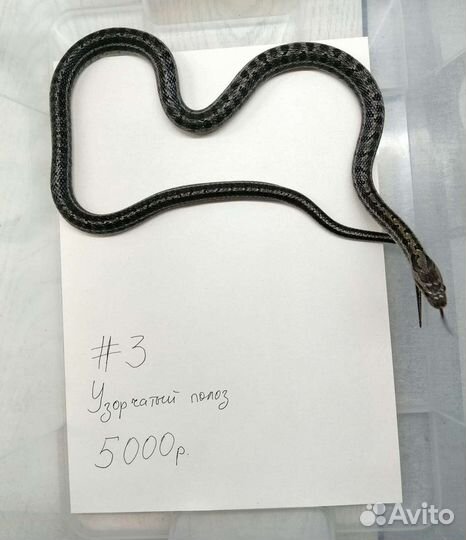 #3
Узорчатый полоз
5000р.
Avito